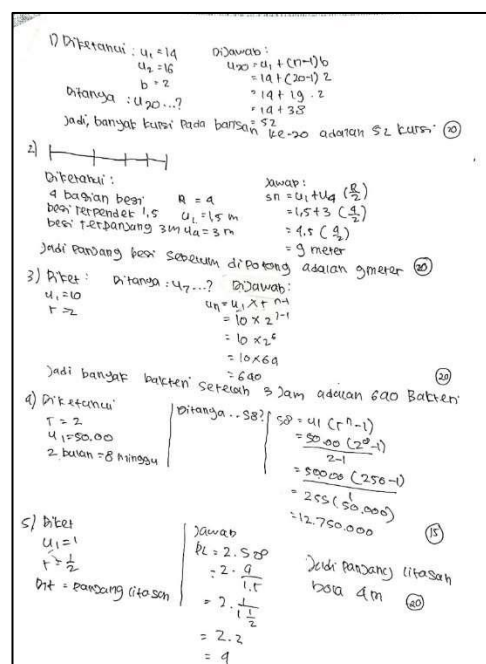 1) Diketahui : u1 = 14
u2 = 16
b = 2
Ditanya : u20 ...?
Dijawab :
u20 = u1 + (n-1) b
= 14 + (20-1) 2
= 14 + 19 . 2
= 14 + 38
= 52
Jadi, banyak kursi pada barisan ke-20 adalah 52 kursi (20)
2)
Diketahui :
4 bagian besi n = 4
besi terpendek 1,5 u1 = 1,5 m
besi terpanjang 3m u4 = 3 m
Jawab :
sn = u1 + u4 (n/2)
= 1,5 + 3 (4/2)
= 4,5 (4/2)
= 9 meter
Jadi panjang besi sebelum dipotong adalah 9 meter (20)
3) Diket :
u1 = 10
r = 2
Ditanya : u7 ...?
Dijawab :
un = u1 x r n-1
= 10 x 2 7-1
= 10 x 2 6
= 10 x 64
= 640
Jadi banyak bakteri setelah 3 Jam adalah 640 Bakteri (20)
4) Diketahui
r = 2
u1 = 50.00
2 bulan = 8 minggu
Ditanya .. S8?
S8 = u1 (r n - 1)
= 50.00 (2 8 - 1)
2-1
= 50000 (256 - 1)
1
= 255 (50.000)
= 12.750.000 (15)
5) Diket
u1 = 1
r = 1/2
Dit = panjang litasan
Jawab
PL = 2 . S∞
= 2 . a
1-r
= 2 . 1
1 1/2
= 2 . 2
= 4
Jadi panjang litasan
bola 4m (20)